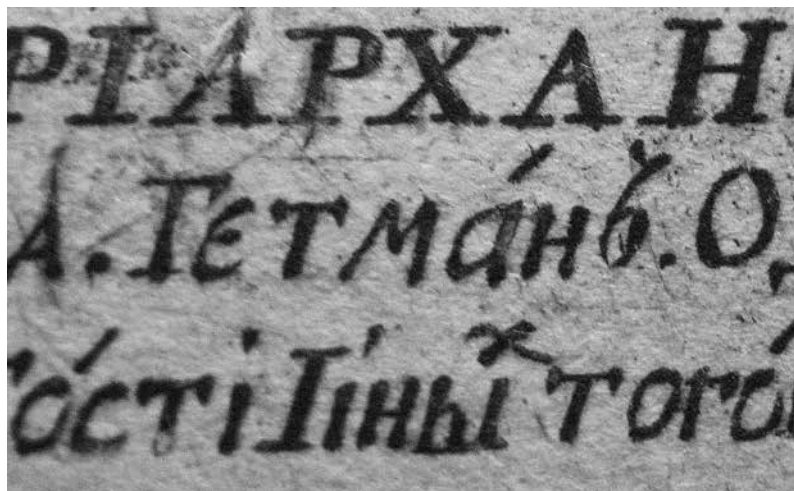 РІАРХАН
А. Гєтма́нъ. О
о́сті Іі́ныⷯ того́